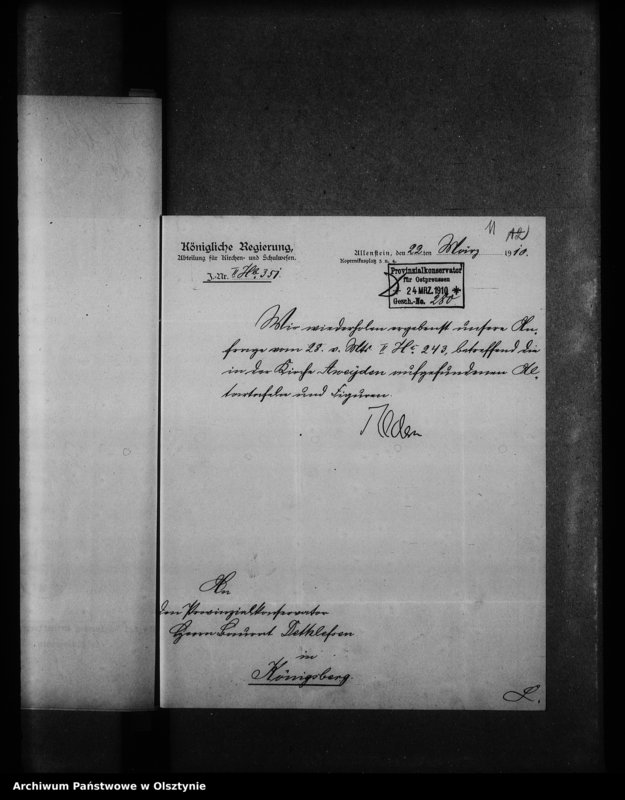 11
Königliche Regierung,
Abteilung für Kirchen- und Schulwesen.
J.-Nr. II Hc 351
Allenstein, den 22. ten März 1910.
Kopernikusplatz
Provinzialkonservator
für Ostpreussen
24 MRZ. 1910
Gesch.-No. 280
Wir wiederholen ergebenst unsere An-
frage vom 28. v. Mts II Hc 243, betreffend die
in der Kirche Aweyden aufgefundenen Al-
tartafeln und Figuren.
An
den Provinzialkonservator
Herrn Baurat Dethlefsen
in
Königsberg.
L.
Archiwum Państwowe w Olsztynie